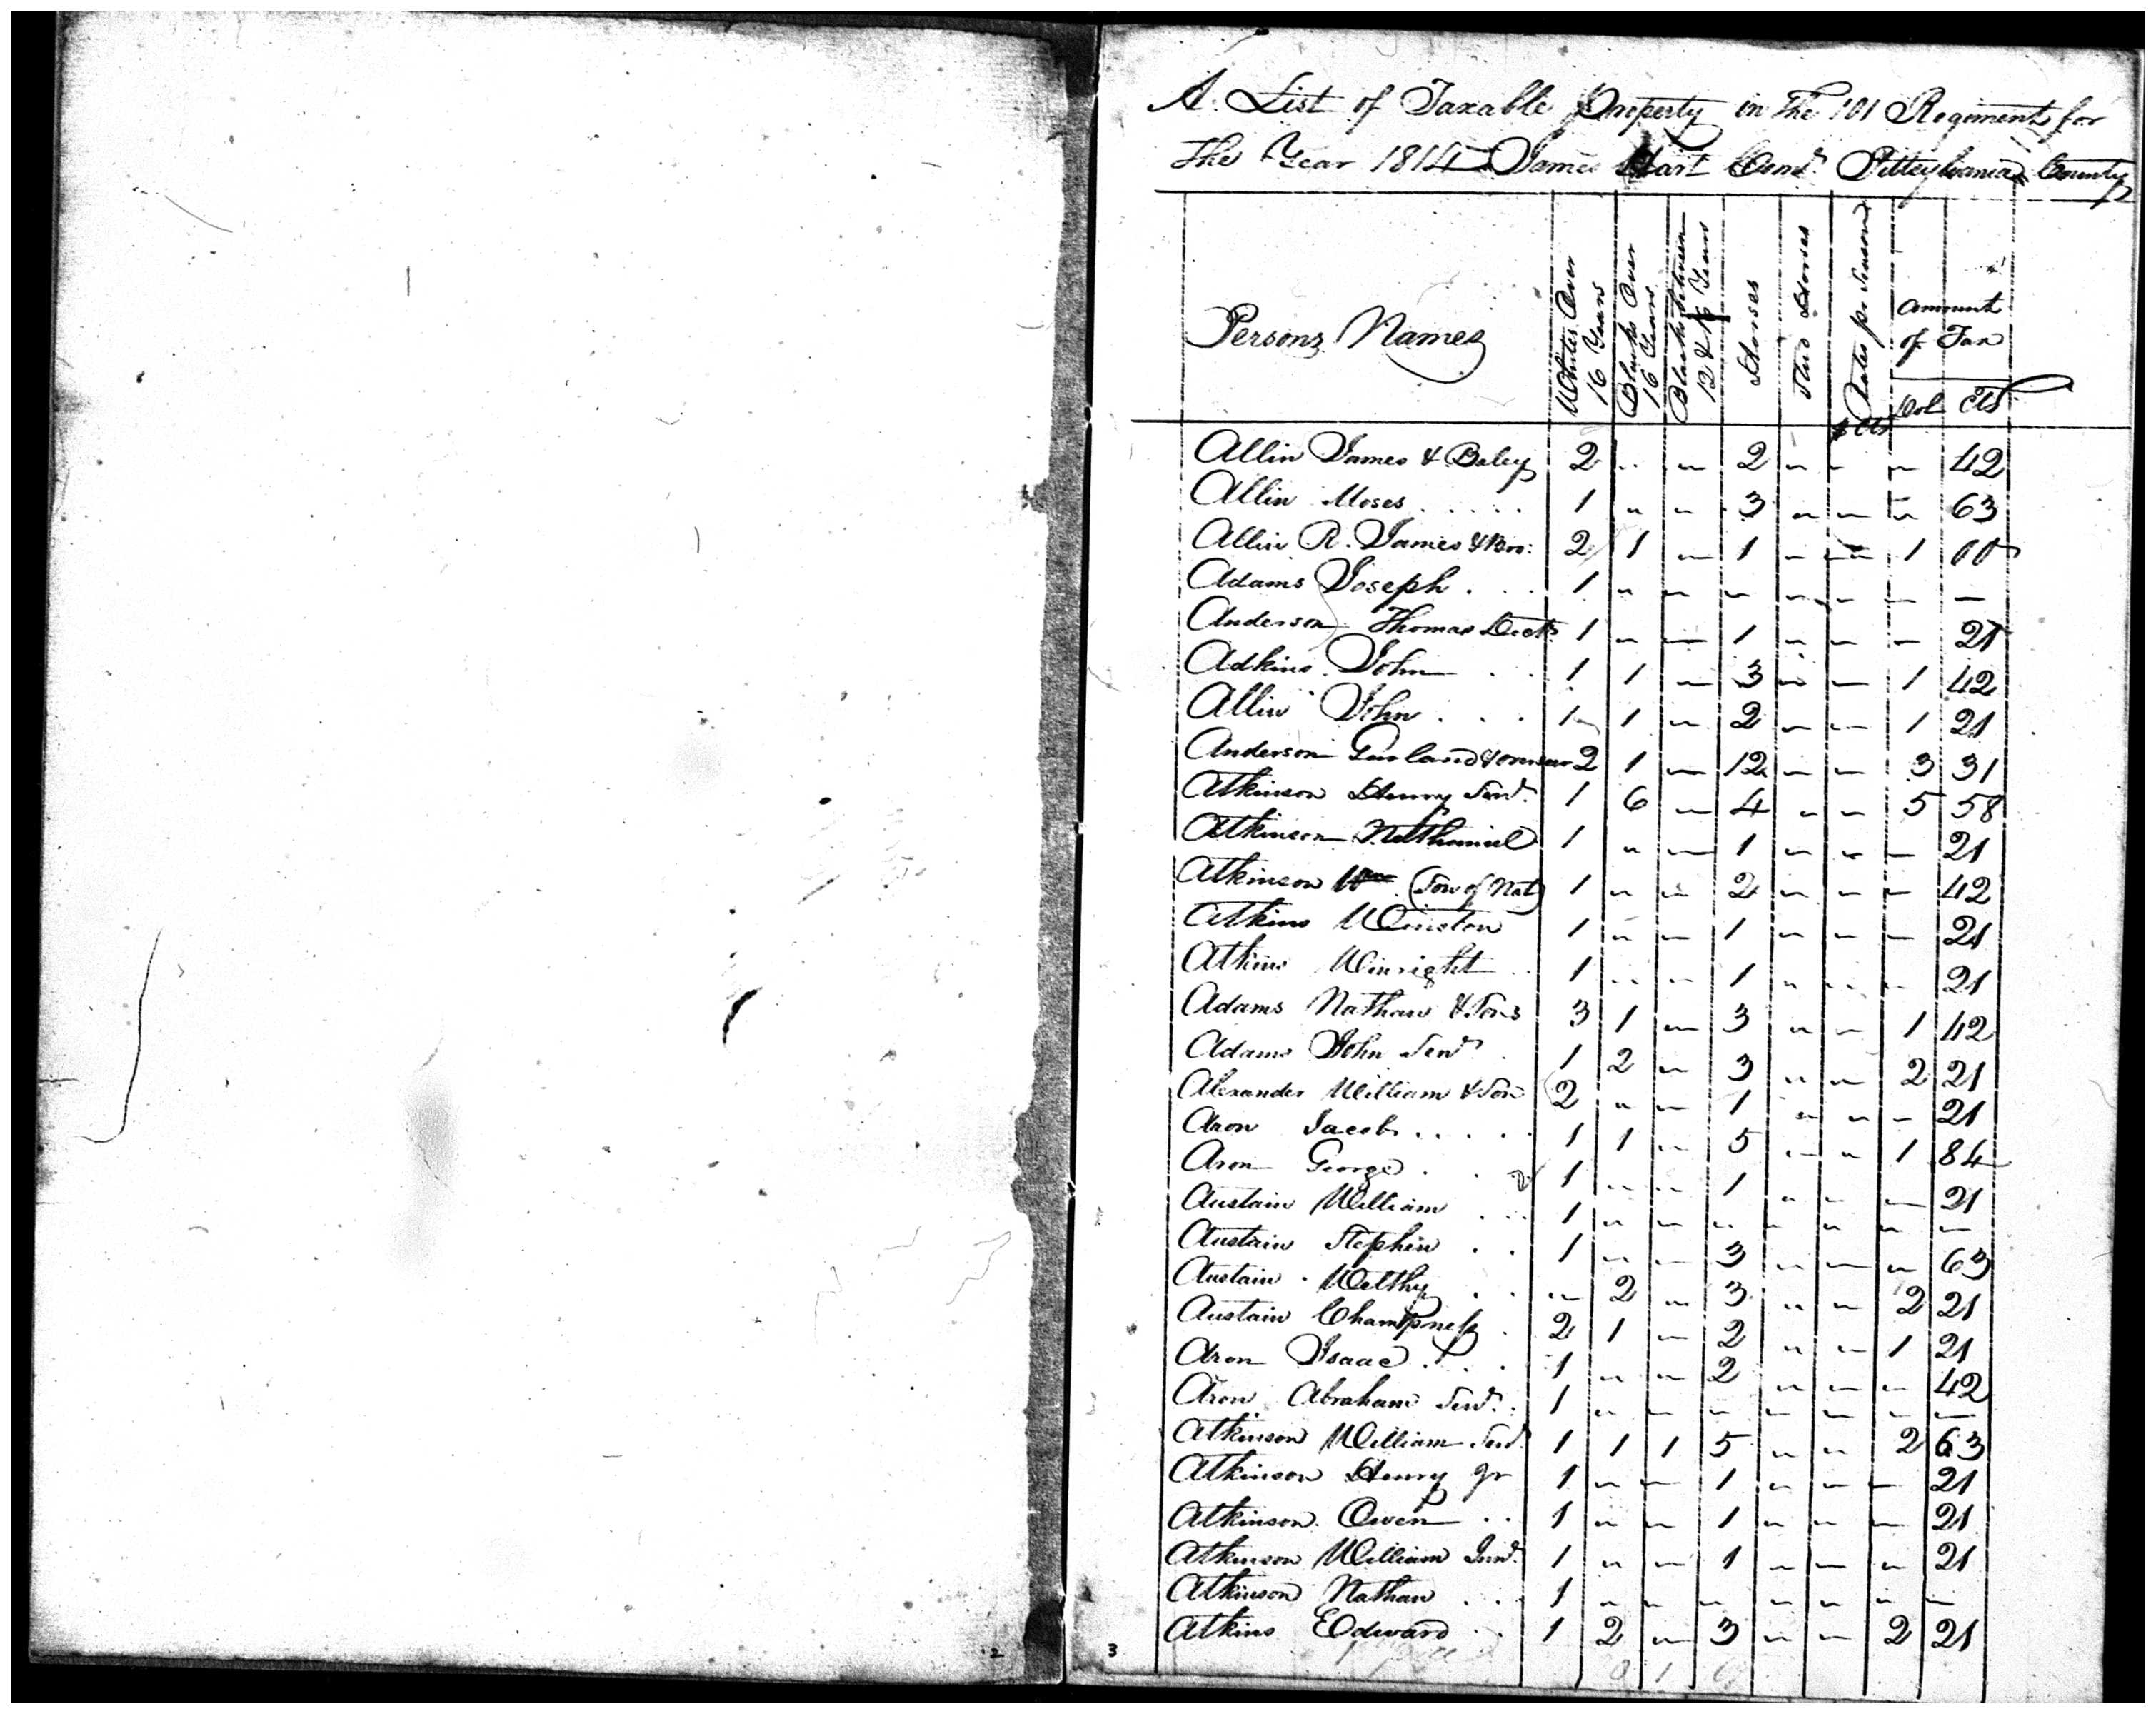 A List of Taxable Property in the 101 Regiment for
the Year 1814 James Hart Comr. Pittsylvania County
Persons Names
Whites Over 16 Years
Blacks Over 16 Years
Blacks between 12 & 16 Years
Horses
Stud Horses
Rates pr Season
$ Cts
Amount of Tax
Dol Cts
Allin James & Baley 2 " " 2 " " " 42
Allin Moses . . . . . 1 " " 3 " " " 63
Allin R. James & Bro: 2 1 " 1 " " 1 00
Adams Joseph . . . 1 " " " " " " —
Anderson Thomas Doctr 1 " " 1 " " " 21
Adkins John . . 1 1 " 3 " " 1 42
Allin John . . . 1 1 " 2 " " 1 21
Anderson Garland & 2 1 " 12 " " 3 31
Atkinson Henry Senr. 1 6 " 4 " " 5 58
Atkinson Nathaniel 1 " " 1 " " " 21
Atkinson Wm (Son of Nat) 1 " " 2 " " " 42
Atkins Winston 1 " " 1 " " " 21
Atkins Winright . . 1 " " 1 " " " 21
Adams Nathan & Sons 3 1 " 3 " " 1 42
Adams John Senr . 1 2 " 3 " " 2 21
Alexander William & Son 2 " " 1 " " " 21
Aron Jacob . . . . . 1 1 " 5 " " 1 84
Aron George . . 1 " " 1 " " " 21
Austain William . . . 1 " " " " " " —
Austain Stephin . . 1 " " 3 " " " 63
Austain Welthy . . " 2 " 3 " " 2 21
Austain Champness . 2 1 " 2 " " 1 21
Aron Isaac . . . . 1 " " 2 " " " 42
Aron Abraham Senr. : 1 " " " " " " —
Atkinson William Senr 1 1 1 5 " " 2 63
Atkinson Henry Jr 1 " " 1 " " " 21
Atkinson Owen . . 1 " " 1 " " " 21
Atkinson William Junr. 1 " " 1 " " " 21
Atkinson Nathan . . . 1 " " " " " " —
Atkins Edward . . 1 2 " 3 " " 2 21
2
3